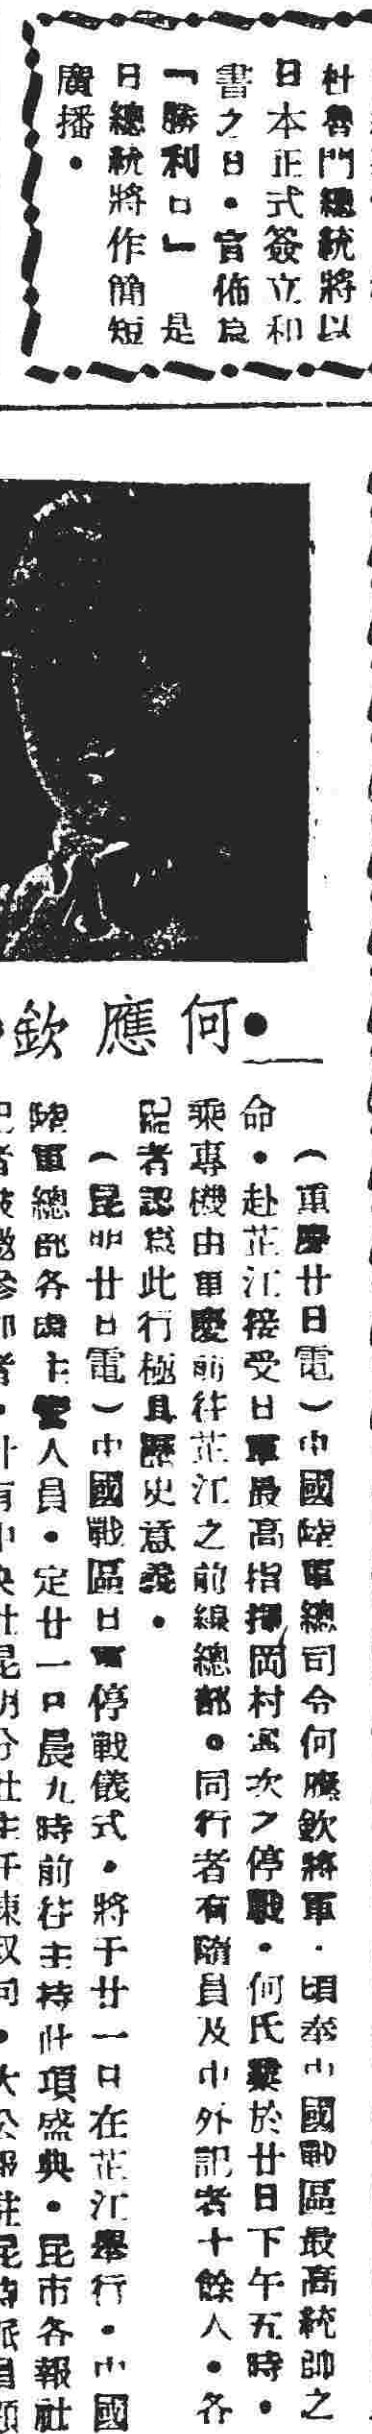 杜魯門總統將以
日本正式簽立和
書之日・宣佈爲
「勝利日」是
日總統將作簡短
廣播・
何應欽
（重慶廿日電）中國陸軍總司令何應欽將軍・頃奉中國戰區最高統帥之
命・赴芷江接受日軍最高指揮岡村寧次之停戰・何氏業於廿日下午五時・
乘專機由重慶前往芷江之前線總部。同行者有隨員及中外記者十餘人・各
記者認爲此行極具歷史意義・
（昆明廿日電）中國戰區日軍停戰儀式・將于廿一日在芷江舉行・中國
陸軍總部各處主管人員・定廿一日晨九時前往主持此項盛典・昆市各報社
記者被邀參加者・計有中央社昆明分社主任陳叔同・大公報駐昆特派員顏